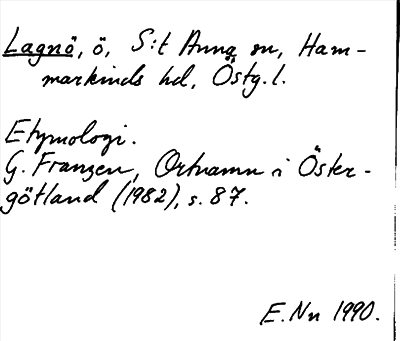 Lagnö, ö, S:t Anna sn, Ham-
markinds hd, Östg. l.
Etymologi.
G. Franzén, Ortnamn i Öster-
götland (1982), s. 87.
E. Nn 1990.